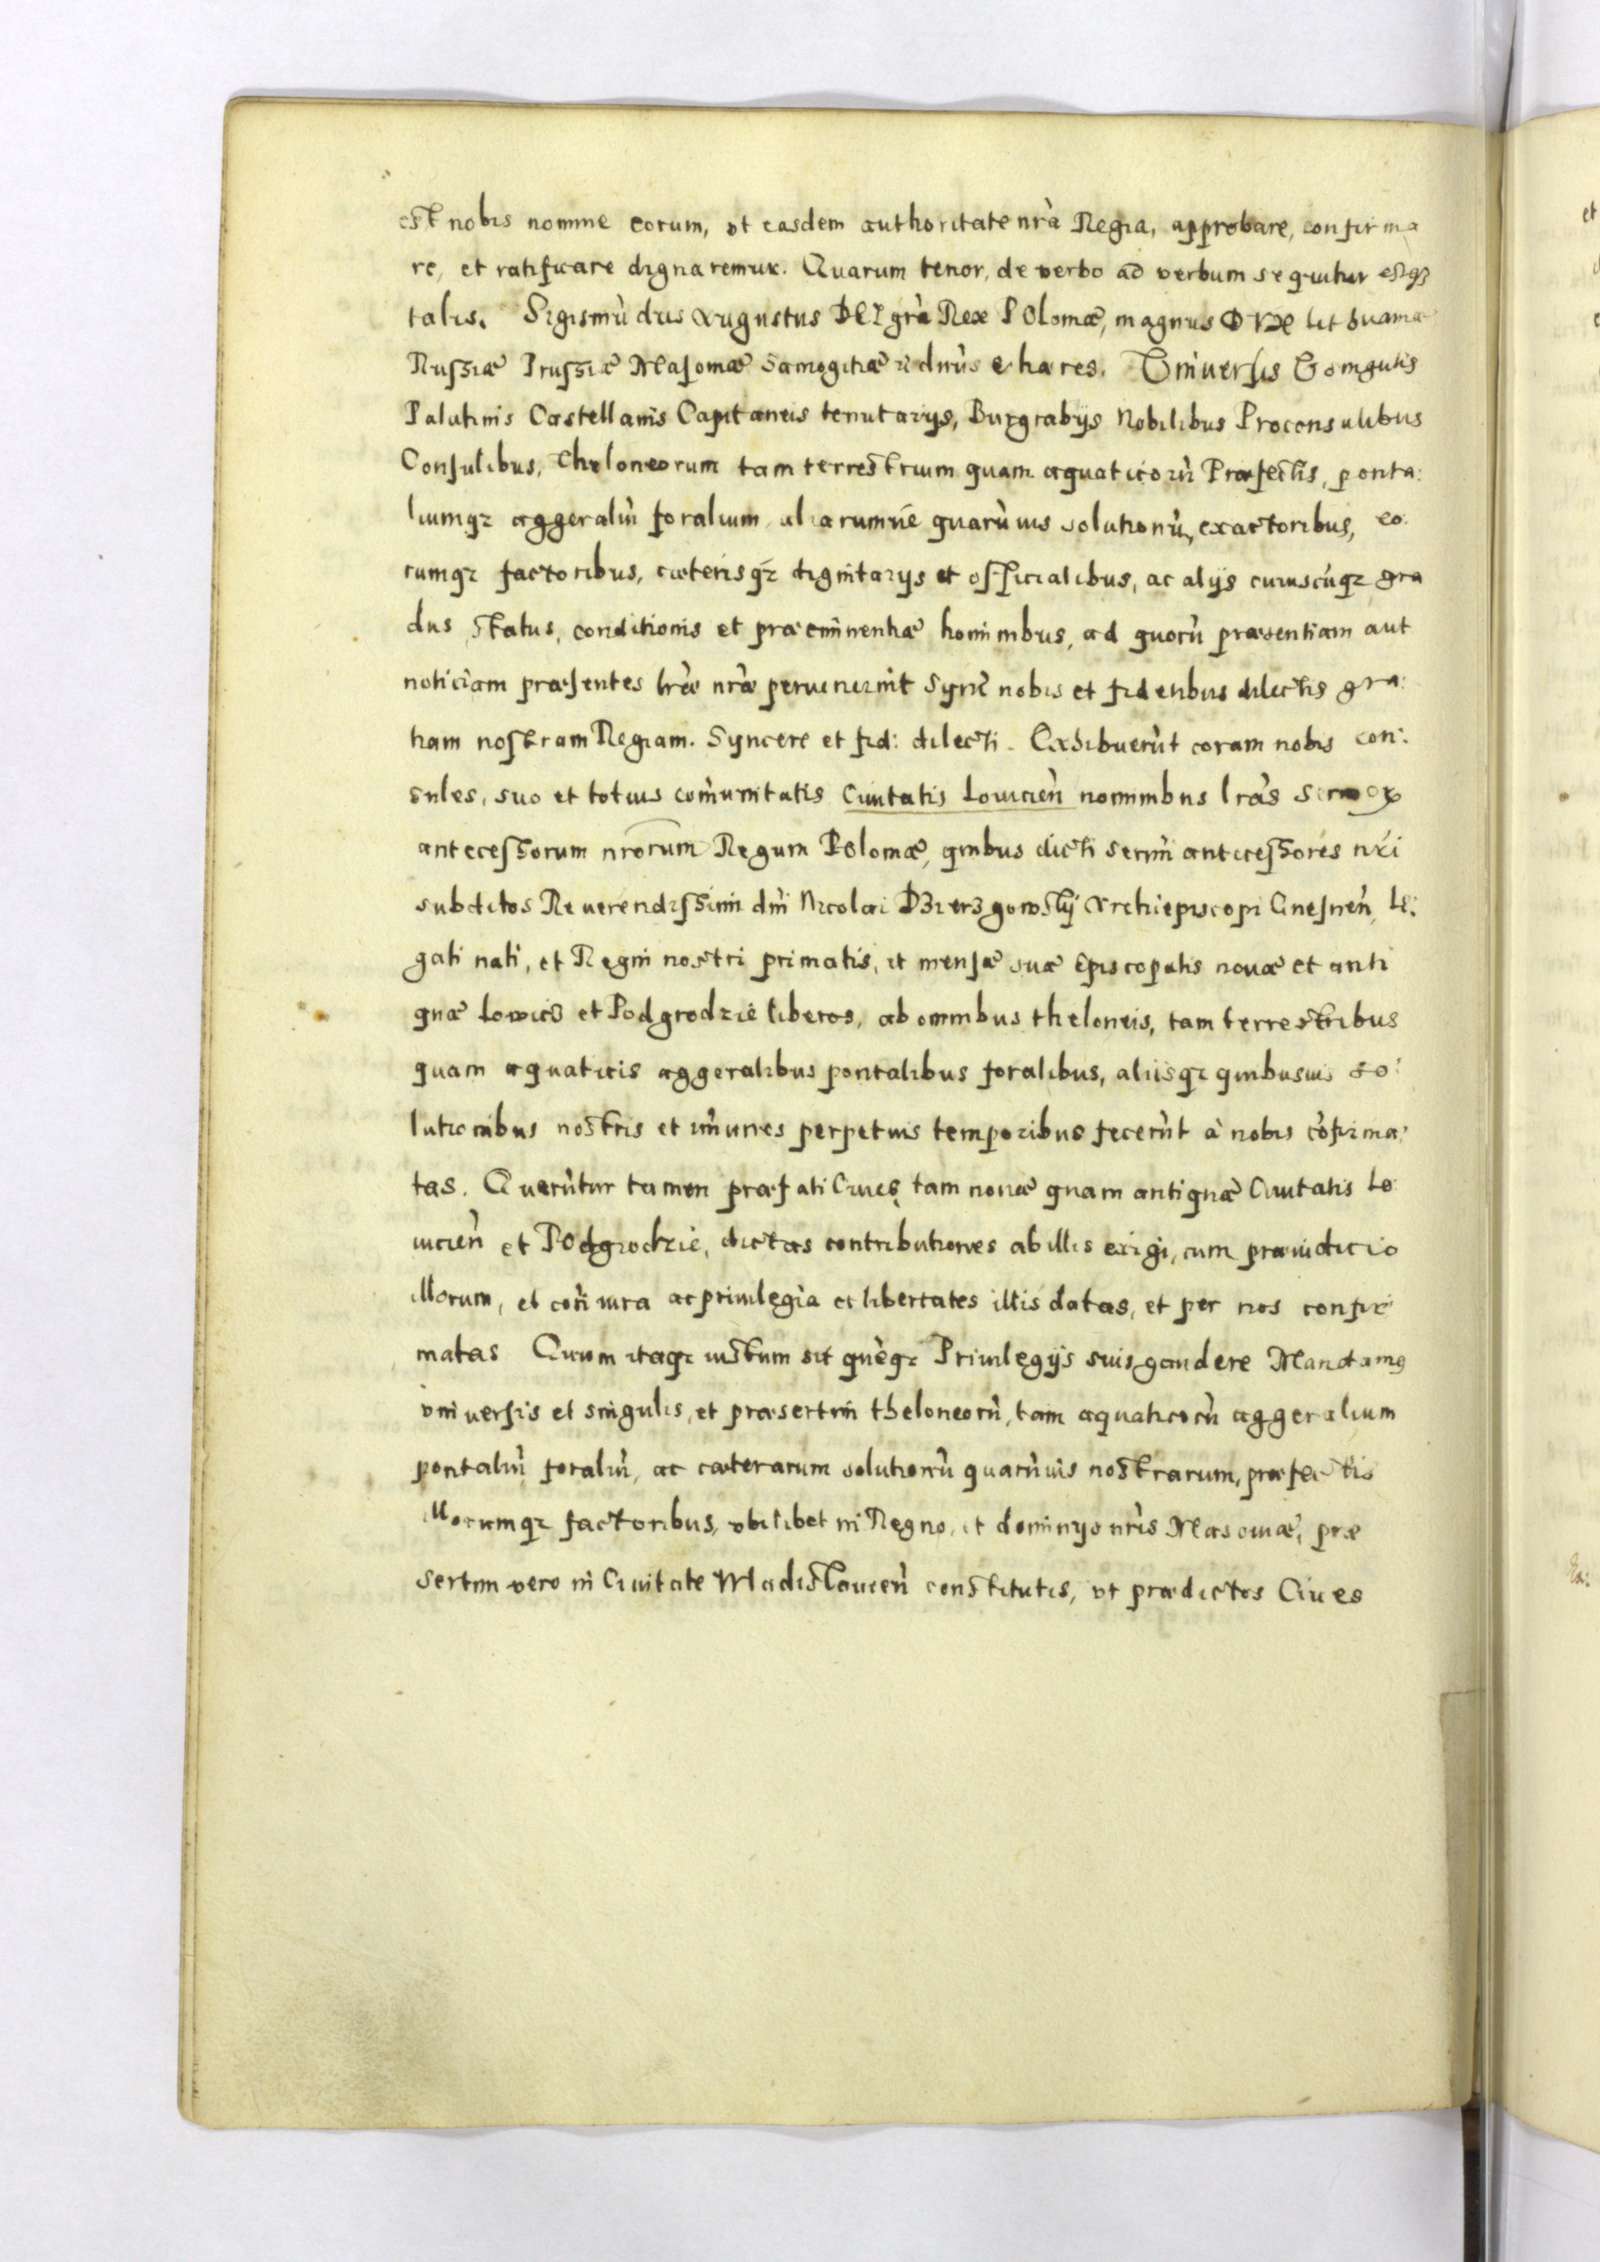 est nobis nomine eorum, vt easdem authoritate nrà Regia, approbare, confirma
re, et ratificare dignaremur. Quarum tenor, de verbo ad verbum sequitur estq3
talis. Sigismùdus Augustus DEI grà Rex POloniæ, magnus DVX Lithuaniæ
Russiæ Prussiæ Masoviæ Samogitiæ dnùs & hæres. Vniversis
Palatinis Castellanis Capitaneis tenutarijs, Burgrabijs Nobilibus Proconsulibus
Consulibus, Theloneorum tam terrestrium quam aquaticorù Præfectis, ponta:
liumq3 aggeraliù foralium aliarumvè quarùvis solutionù, exactoribus, eo:
rumq3 factoribus, cæterisq3 dignitarijs et officialibus, ac alijs cuiuscùq3 gra
dus status, conditionis et præeminentiæ hominibus, ad quorù præsentiam aut
noticiam præsentes lrèæ nrèæ pervenerint Syncè nobis et fidelibus dilectis gra:
tiam nostram Regiam. Syncere et fid: dilecti. Exhibuerùt coram nobis con:
sules, suo et totius comùnitatis Civitatis Lovicièn nominibus lràs
antecessorum nrorum Regum Poloniæ, quibus dicti sermì antecessores nrì
subditos Reverendissimi dnì Nicolai Dzierzgowskij Archiepiscopi Gnesnèn, Le:
gati nati, et Regni nostri primatis, et mensæ suæ Episcopalis novæ et anti
quæ Lowicz et Podgrodzie liberos, ab omnibus theloneis, tam terrestribus
quam aquaticis aggeralibus pontalibus foralibus, aliisq3 quibusvis so:
lutionibus nostris et imùnes perpetuis temporibus fecerùt à nobis còfirma:
tas. Querùtur tamen præfati Cives, tam novæ quam antiquæ Civitatis Lo:
vicièn et Podgrodzie, dictas contributiones ab illis exigi, cum præiudicio
illorum, et cotrì iura ac privilegia et libertates illis datas, et per nos confir
matas Quum itaq3 iustum sit quèq3 Privilegijs suis gaudere Mandamus
vniversis et singulis, et præsertim theloneorù, tam aquaticorù aggeralium
pontaliù foraliù, ac cæterarum solutionù quarùvis nostrarum, præfectis
illorumq3 factoribus, vbilibet in Regno, et dominijs nrìs Masoviæ, præ
sertim vero in Civitate Wladislavièn constitutis, vt prædictos Cives